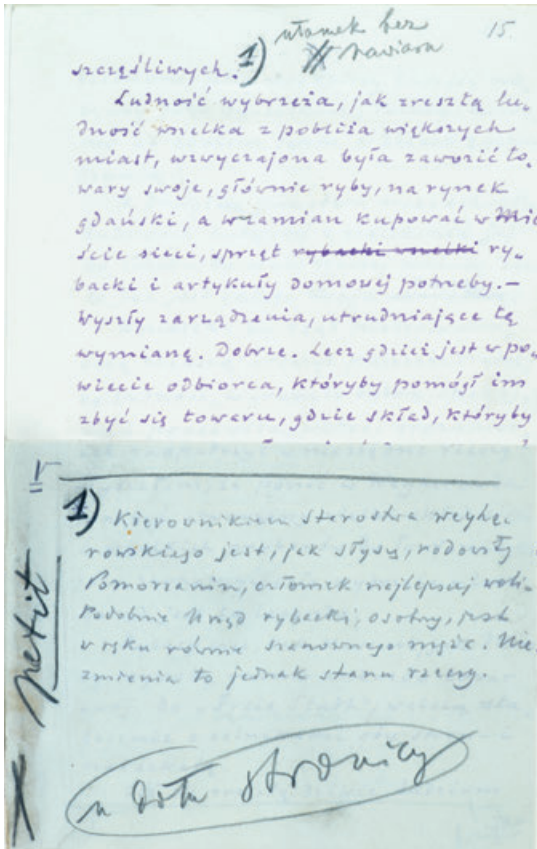 15
ułamek bez
nawiasu
szczęśliwych. 1)
Ludność wybrzeża, jak zresztą lu-
dność wszelka z pobliża większych
miast, wzwyczajona była zawozić to-
wary swoje, głównie ryby, na rynek
gdański, a wzamian kupować w mie
ście sieci, sprzęt rybacki wszelki ry-
backi i artykuły domowej potrzeby. —
Wyszły zarządzenia, utrudniające tę
wymianę. Dobrze. Lecz gdzież jest w po-
wiecie odbiorca, któryby pomógł im
zbyć się towaru, gdzie skład, któryby
1) Kierownikiem starostwa wejhe-
rowskiego jest, jak słyszę, rodowity
Pomorzanin, człowiek najlepszej woli.
Podobnie Urząd rybacki, osobny, jest
w ręku równie szanownego męża. Nie
zmienia to jednak stanu rzeczy.
petit
u dołu stronicy